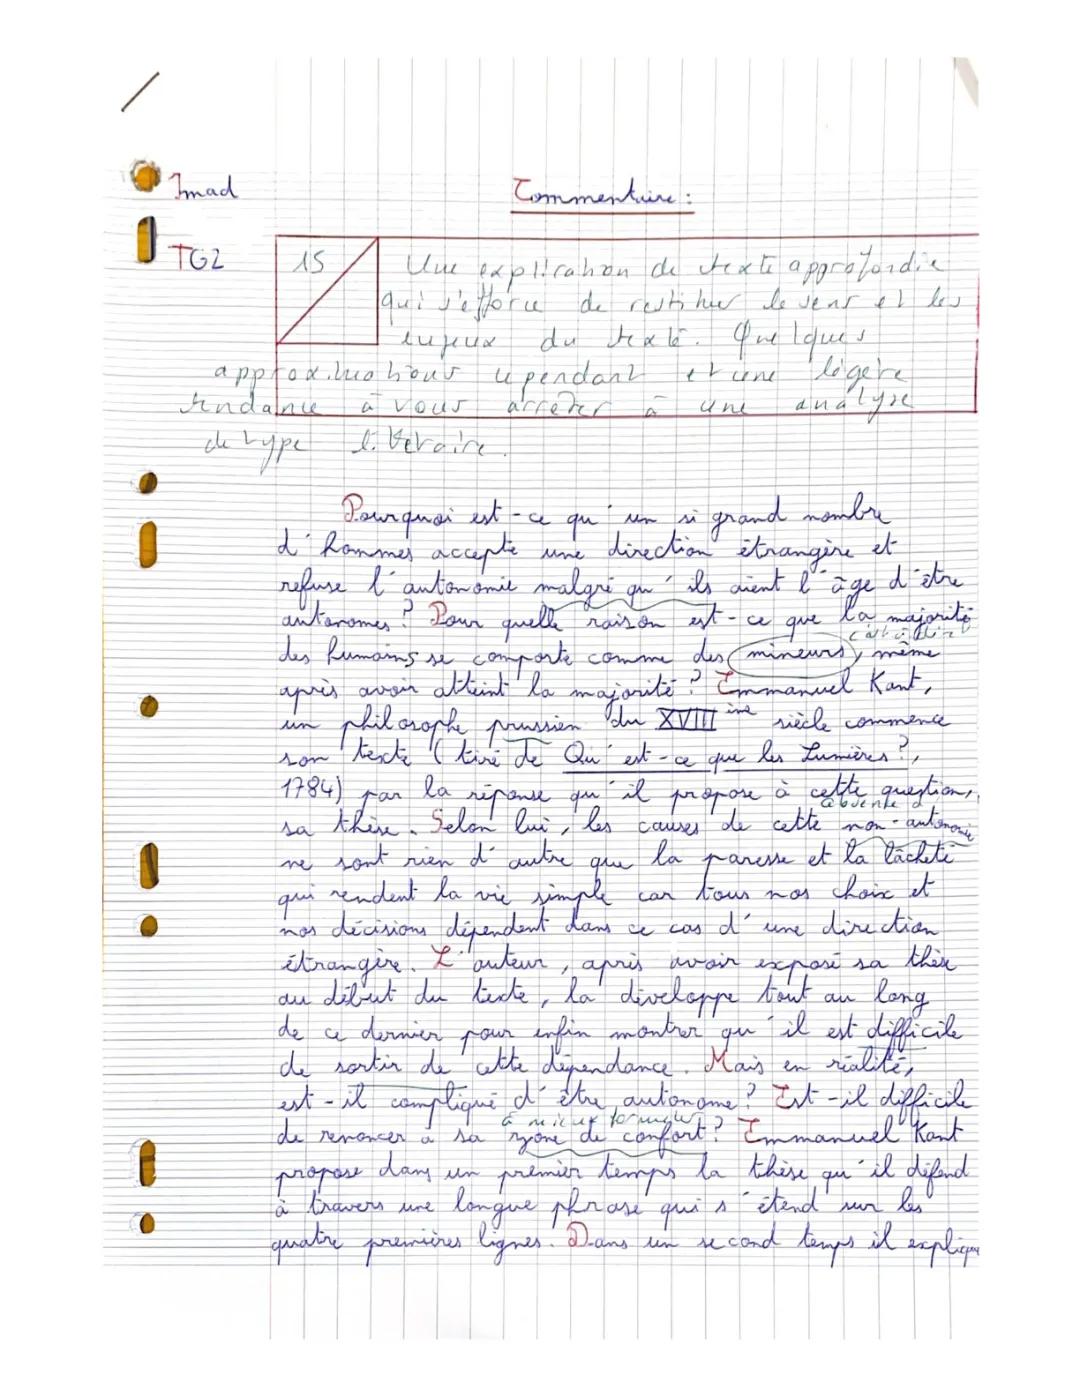 Imad
Commentaire :
TG2
15
Une explication de texte approfondie
qui s'efforce de restituer le sens et les
enjeux du texte. Quelques
approximations cependant et une légère
tendance à vous arrêter à une analyse
de type littéraire.
Pourquoi est-ce qu'un si grand nombre
d'hommes accepte une direction étrangère et
refuse l'autonomie malgré qu'ils aient l'âge d'être
autonomes ? Pour quelle raison est-ce que la majorité
c'est-à-dire ?
des humains se comporte comme des mineurs, même
après avoir atteint la majorité ? Emmanuel Kant,
un philosophe prussien du XVIII ème siècle commence
son texte (tiré de Qu'est-ce que les Lumières ?,
1784) par la réponse qu'il propose à cette question,
sa thèse. Selon lui, les causes de cette non-autonomie
ne sont rien d'autre que la paresse et la lâcheté
qui rendent la vie simple car tous nos choix et
nos décisions dépendent dans ce cas d'une direction
étrangère. L'auteur, après avoir exposé sa thèse
au début du texte, la développe tout au long
de ce dernier pour enfin montrer qu'il est difficile
de sortir de cette dépendance. Mais en réalité,
est-il compliqué d'être autonome ? Est-il difficile
à mieux formuler
de renoncer à sa zone de confort ? Emmanuel Kant
propose dans un premier temps la thèse qu'il défend
à travers une longue phrase qui s'étend sur les
quatre premières lignes. Dans un second temps il explique